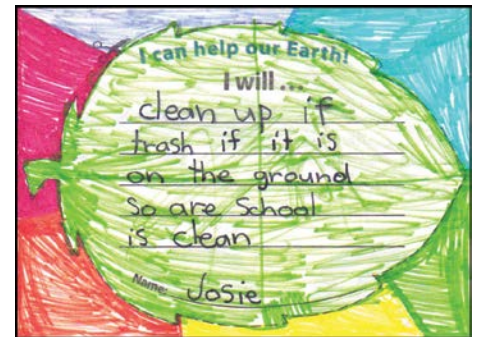 I can help our Earth!
I will ...
clean up if
trash if it is
on the ground
So are School
is clean
Name: Josie